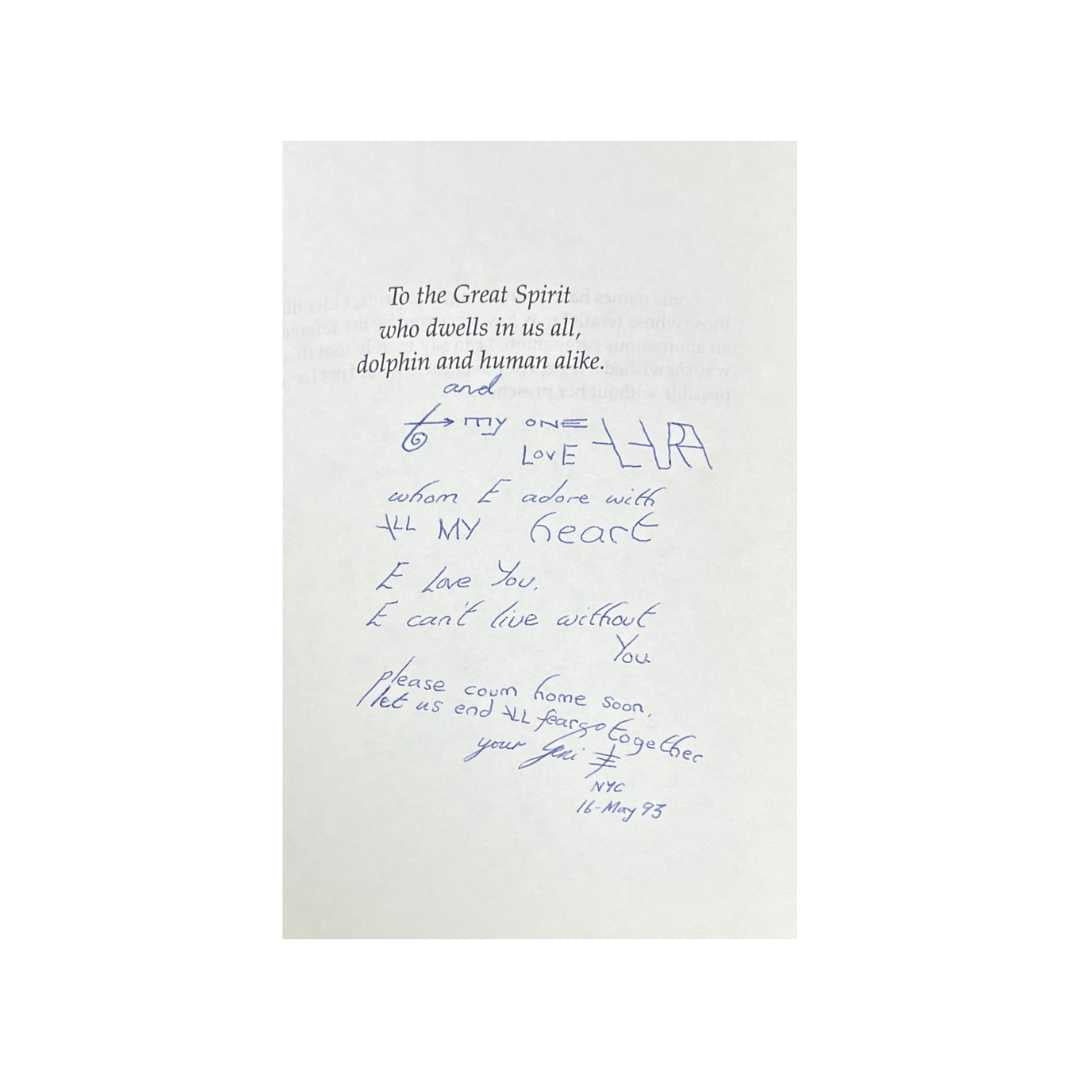 To the Great Spirit
who dwells in us all,
dolphin and human alike.
and
my ONE
LovE
whom E adore with
ALL MY heart
E Love You.
E can't live without
You
please coum home soon,
let us end ALL fear go together
your
NYC
16-May 93